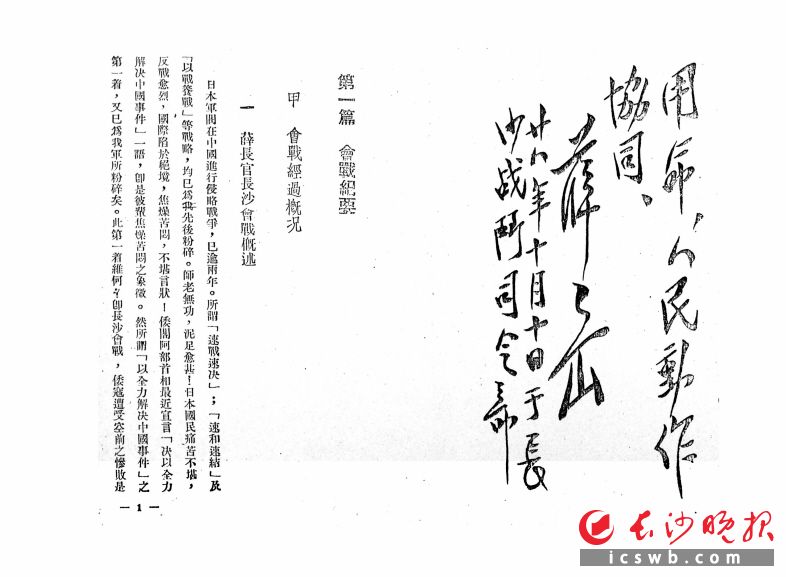 用命，人民動作
協同、
薛岳
廿八年十月十日于長
沙战鬥司令部
第一篇 會戰紀要
甲 會戰經過概況
一 薛長官長沙會戰概述
日本軍閥在中國進行侵略戰爭，已逾兩年。所謂「速戰速决」；「速和速結」及
「以戰養戰」等戰略，均已爲我先後粉碎。師老無功，泥足愈甚！日本國民痛苦不堪，
反戰愈烈，國際陷於絕境，焦燥苦悶，不堪言狀！倭閣阿部首相最近宣言「决以全力
解决中國事件」一語，卽是彼輩焦燥苦悶之象徵。然所謂「以全力解决中國事件」之
第一着，又已爲我軍所粉碎矣。此第一着維何？卽長沙會戰，倭寇遭受空前之慘敗是
— 1 —
长沙晚报
icswb.com